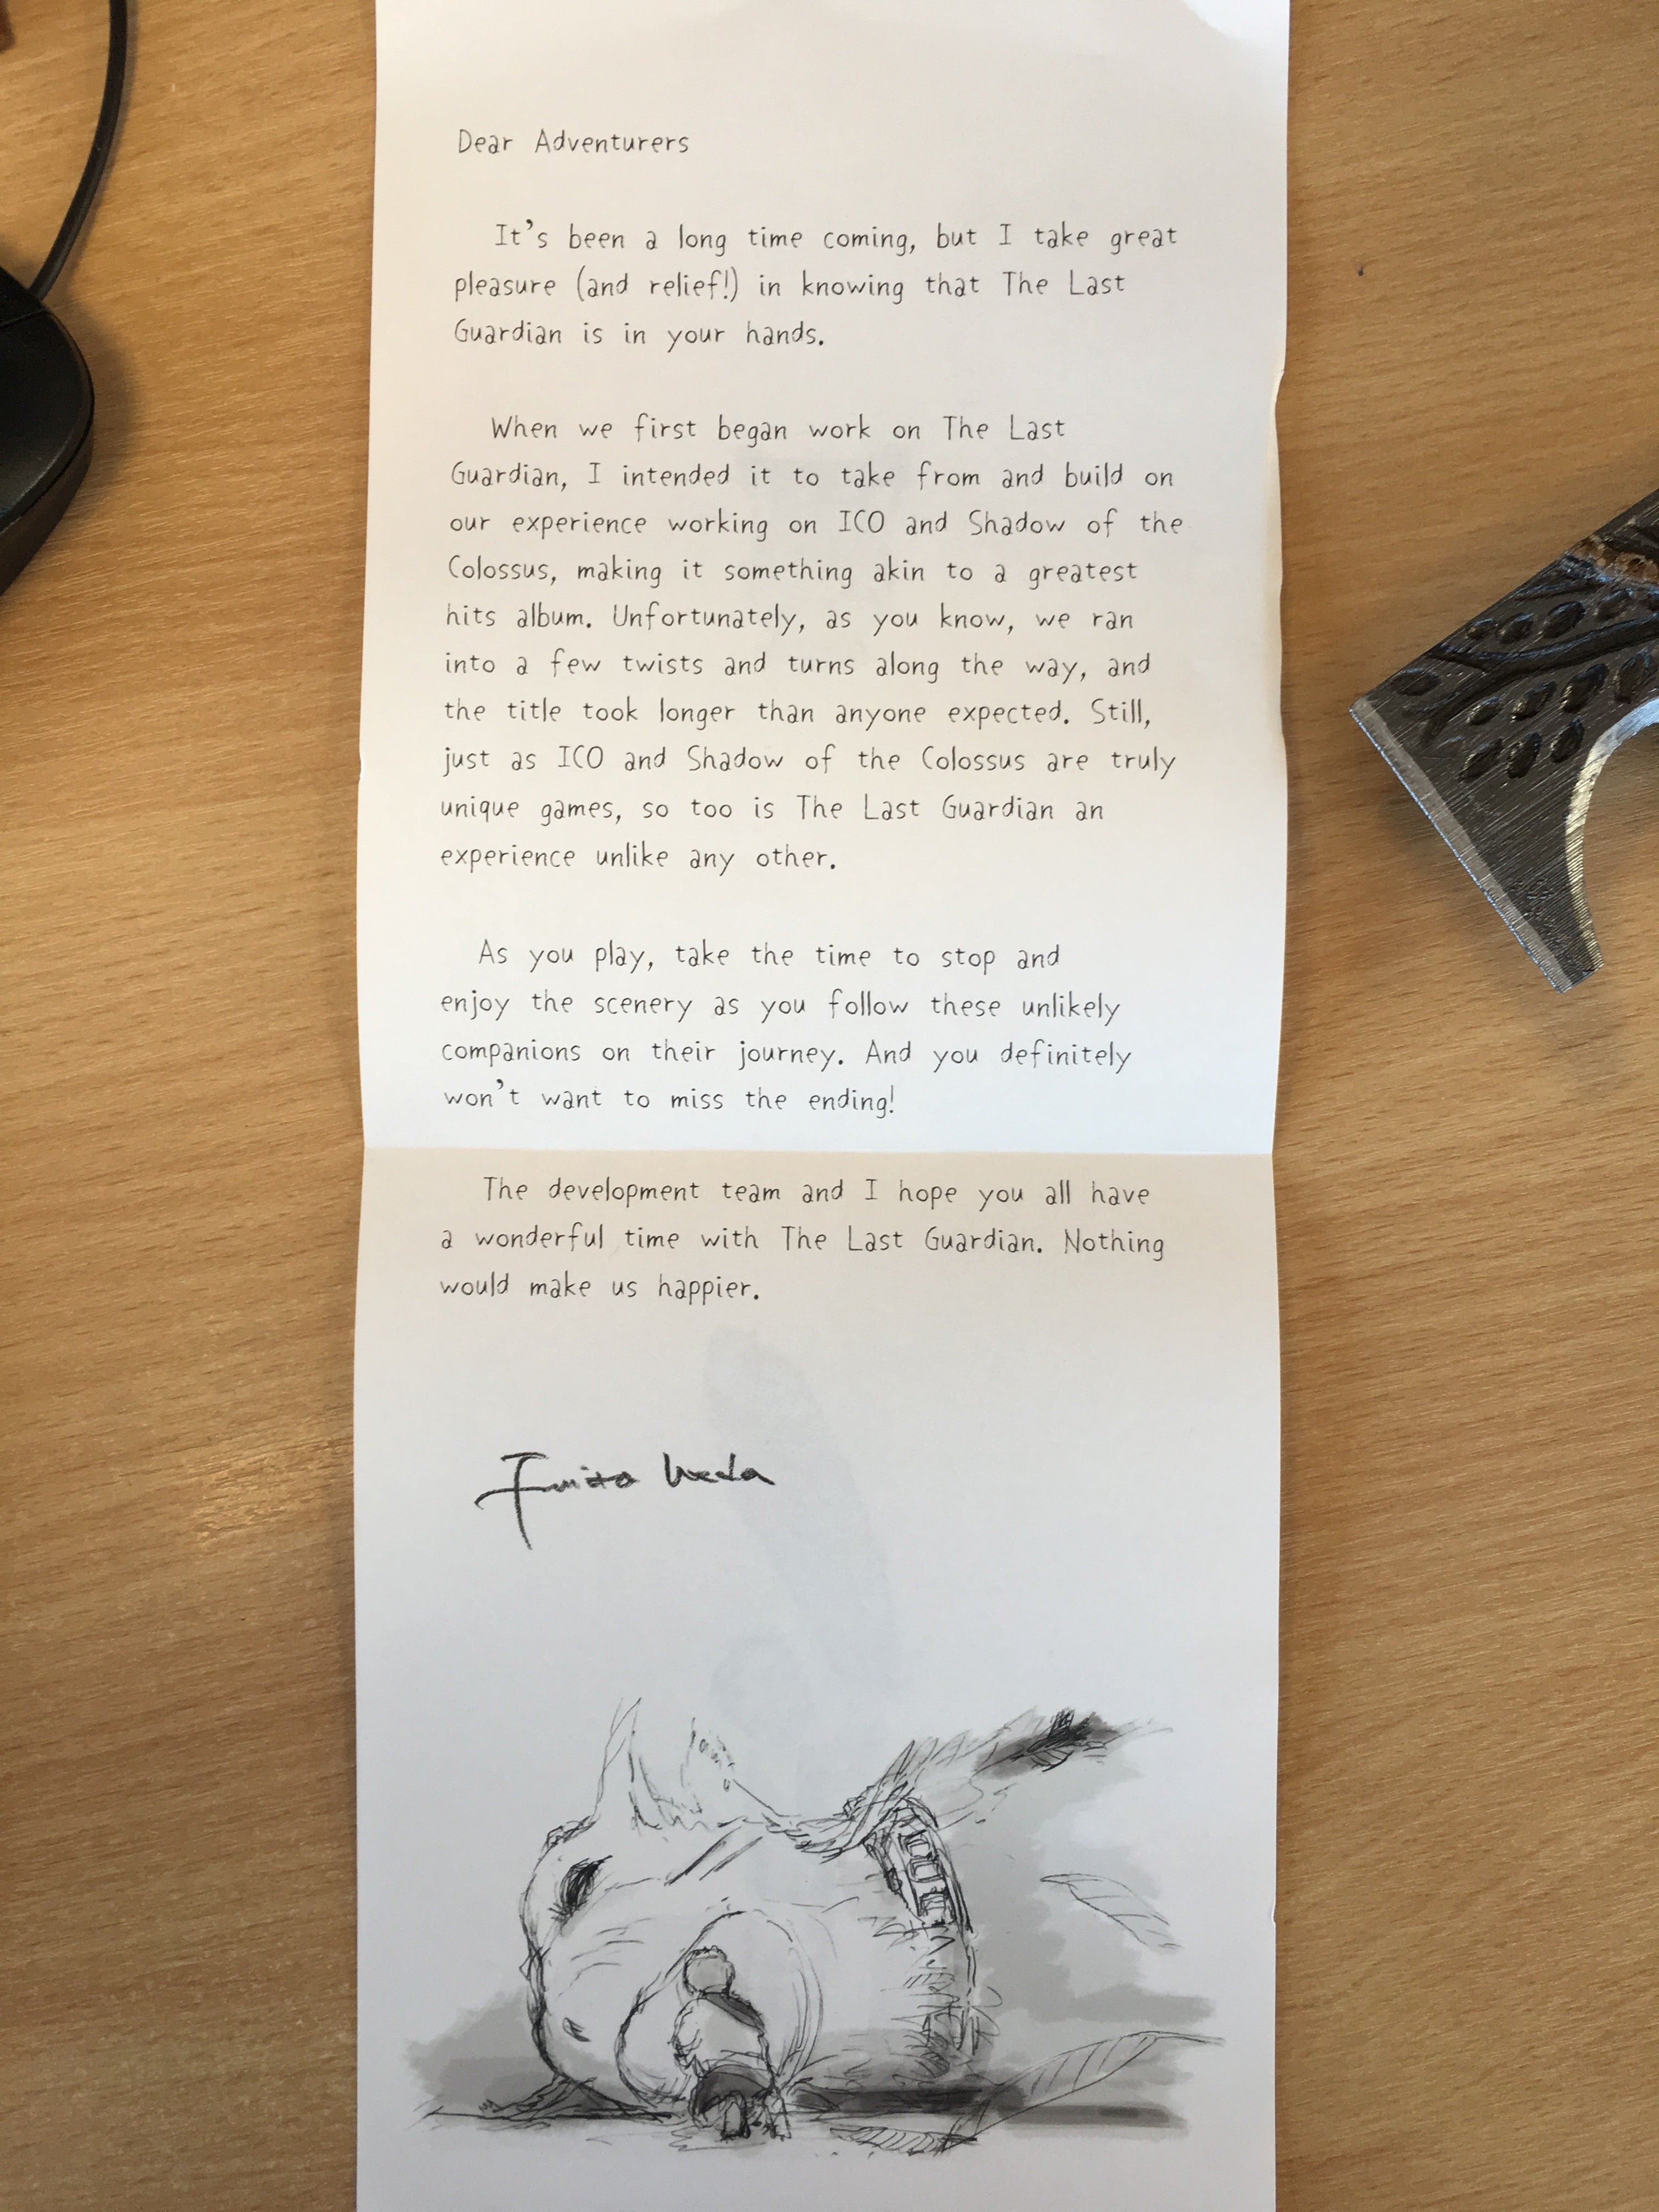 Dear Adventurers
It's been a long time coming, but I take great
pleasure (and relief!) in knowing that The Last
Guardian is in your hands.
When we first began work on The Last
Guardian, I intended it to take from and build on
our experience working on ICO and Shadow of the
Colossus, making it something akin to a greatest
hits album. Unfortunately, as you know, we ran
into a few twists and turns along the way, and
the title took longer than anyone expected. Still,
just as ICO and Shadow of the Colossus are truly
unique games, so too is The Last Guardian an
experience unlike any other.
As you play, take the time to stop and
enjoy the scenery as you follow these unlikely
companions on their journey. And you definitely
won't want to miss the ending!
The development team and I hope you all have
a wonderful time with The Last Guardian. Nothing
would make us happier.
Fumito Ueda